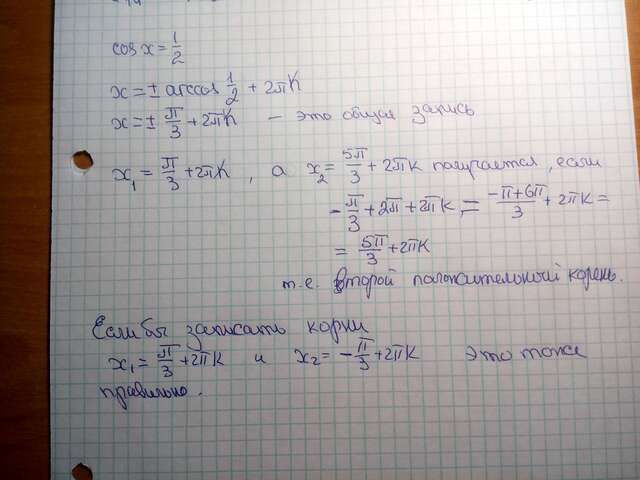 cos x = 1/2
x = ± arccos 1/2 + 2πK
x = ± π/3 + 2πK – это общая запись
x₁ = π/3 + 2πK, а x₂ = 5π/3 + 2πK получается, если
- π/3 + 2π + 2πK = (-π+6π)/3 + 2πK =
= 5π/3 + 2πK
т.е. второй положительный корень.
Если бы записать корни
x₁ = π/3 + 2πK и x₂ = - π/3 + 2πK это тоже
правильно.